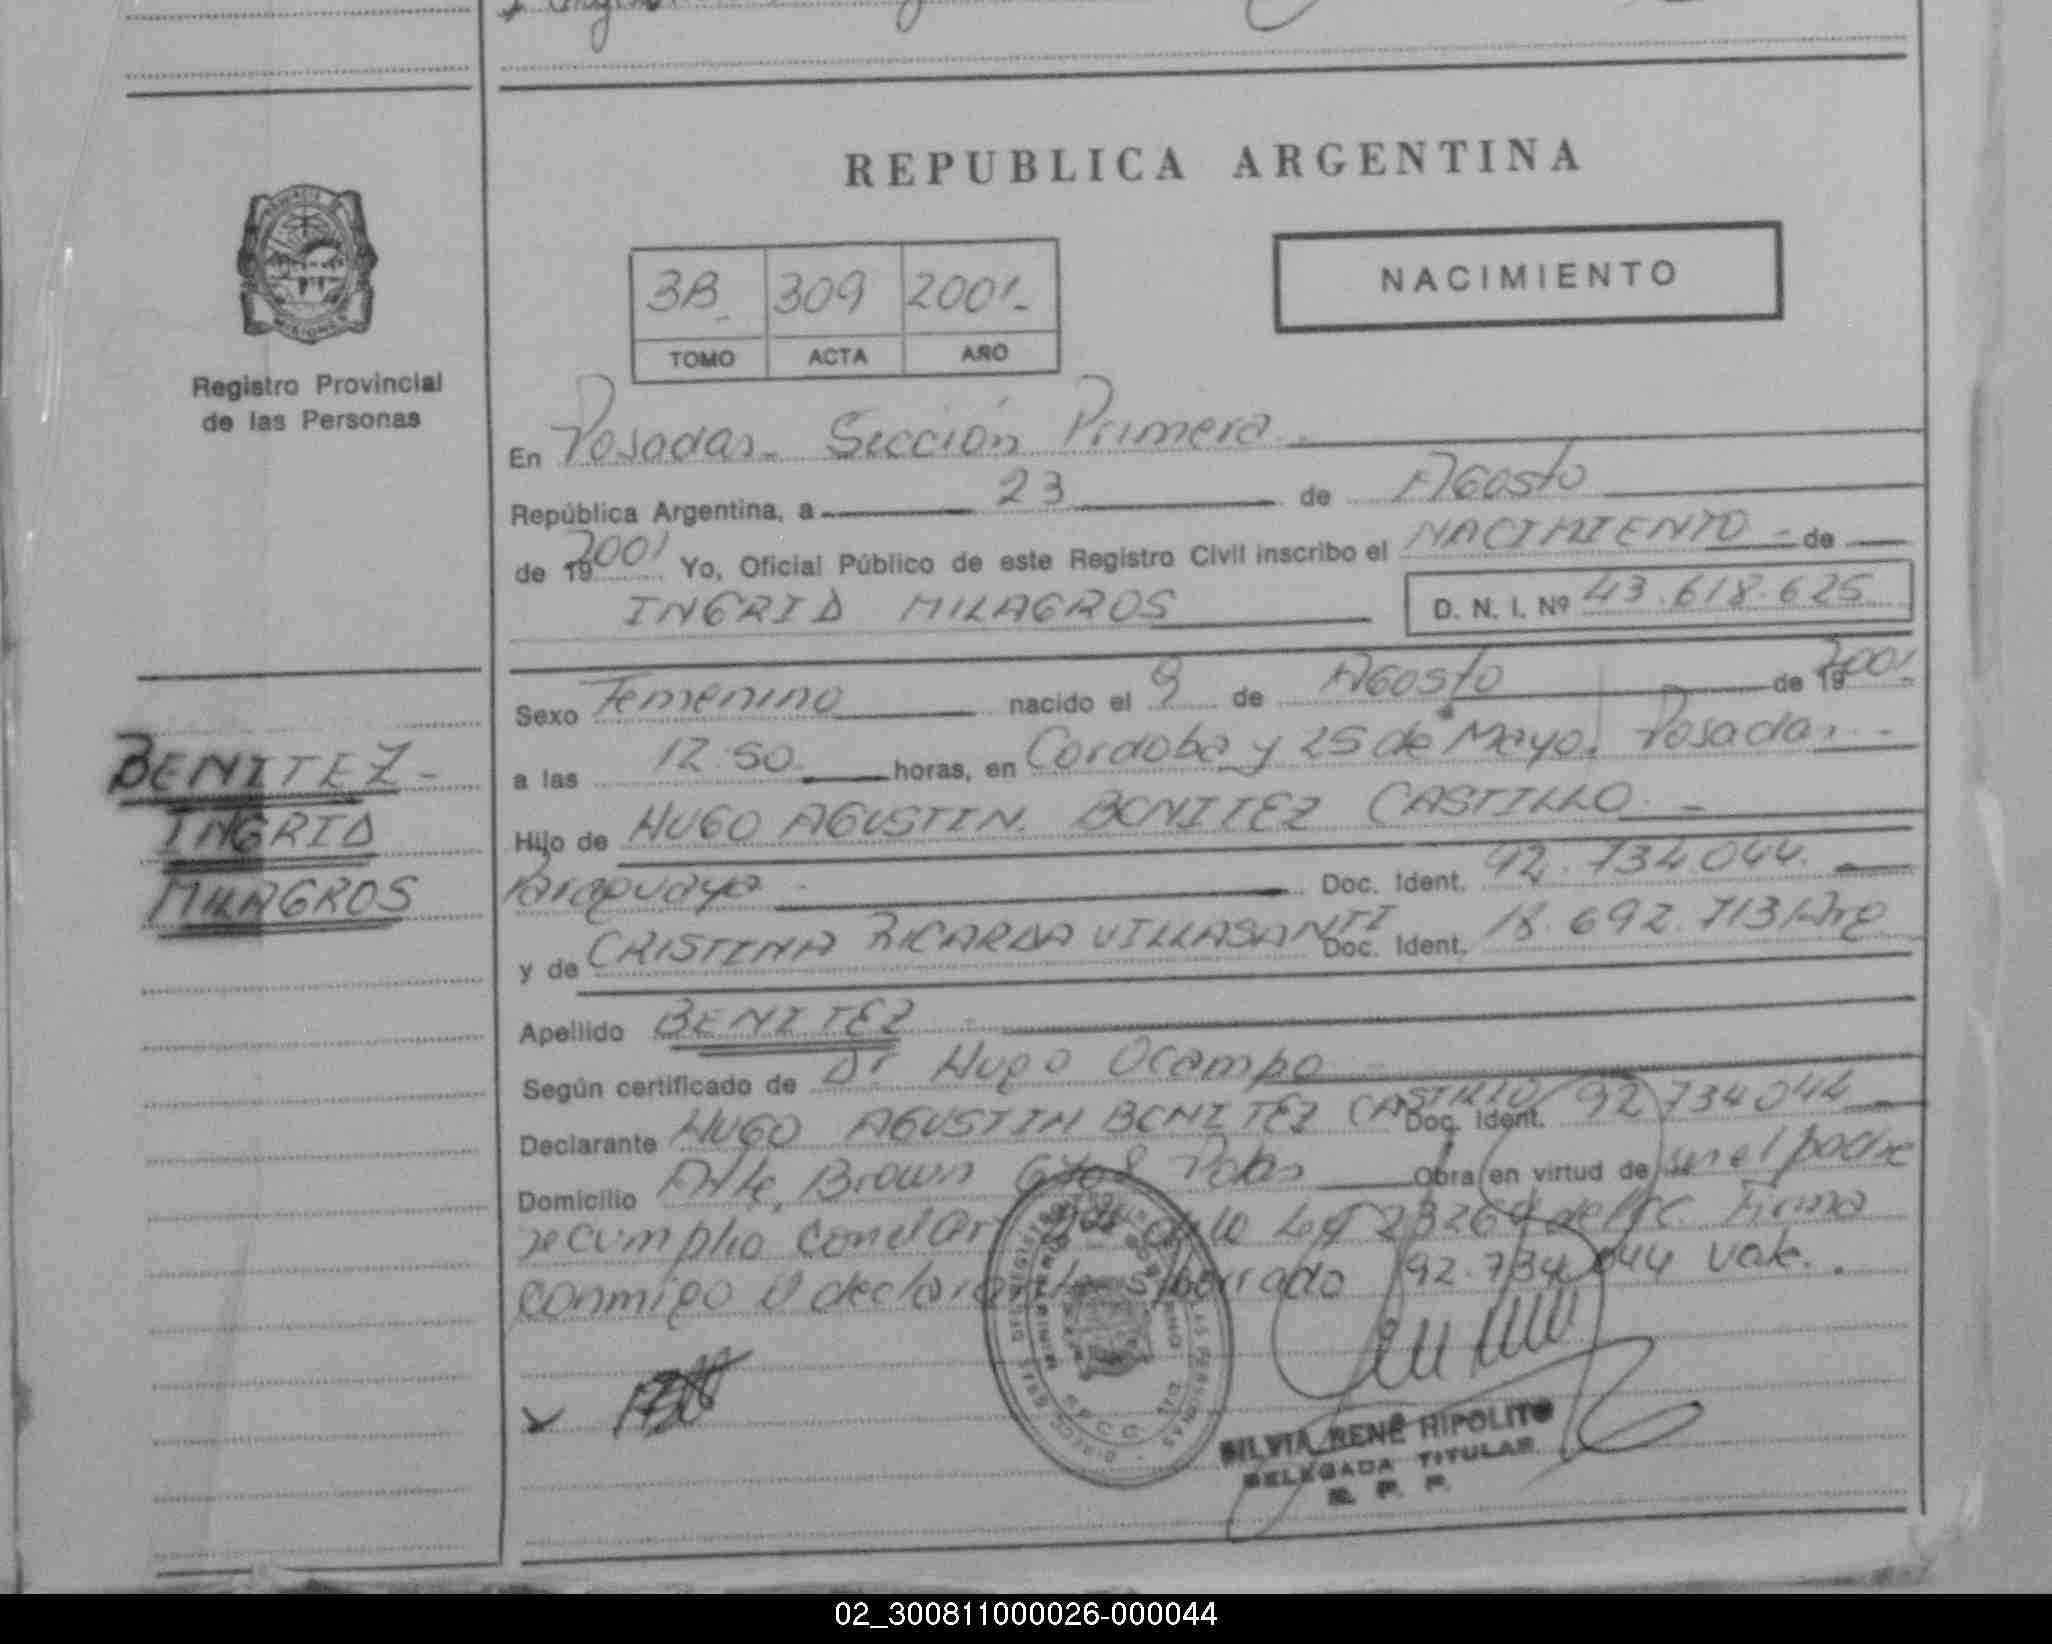 REPUBLICA ARGENTINA
NACIMIENTO
3B 309 2001.-
TOMO ACTA AÑO
Registro Provincial
de las Personas
En Posadas. Sección Primera.
República Argentina, a 23 de Agosto
de 19 2001 Yo, Oficial Público de este Registro Civil inscribo el NACIMIENTO - de
INGRID MILAGROS D. N. I. Nº 43.618.625
Sexo Femenino nacido el 9 de Agosto de 19 2001.
a las 12.50 horas, en Cordoba y 25 de Mayo. Posadas.-
BENITEZ-
INGRID
MILAGROS
Hijo de HUGO AGUSTIN BENITEZ CASTILLO.-
Paraguaya. Doc. Ident. 92.734.044.
y de CRISTINA RICARDA VILLASANTI Doc. Ident. 18.692.713/Arg
Apellido BENITEZ
Según certificado de Dr Hugo Ocampo
Declarante HUGO AGUSTIN BENITEZ CASTILLO Doc. Ident. 92734044
Domicilio Alte. Brown Pdas Obra en virtud de ser el padre
se cumplio con el Art de la Ley 23264 del C.C. Firma
conmigo el declarante S/borrado 92.734.044 vale.
SILVIA RENE HIPOLITO
DELEGADA TITULAR
R. P. P.
02_300811000026-000044